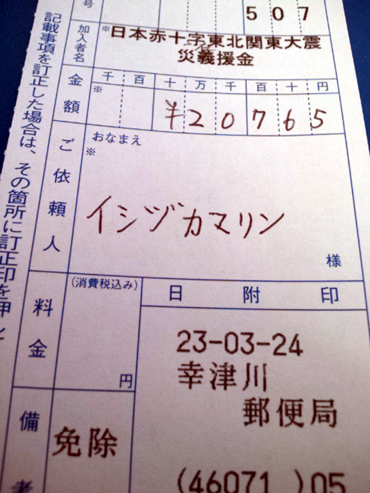 号
507
加入者名
※日本赤十字東北関東大震
災義援金
金額
千 百 十 万 千 百 十 円
※
¥20765
ご依頼人
おなまえ
※
イシヅカマリン
様
料金
(消費税込み)
円
日附印
23-03-24
幸津川
郵便局
(46071 )05
備考
免除
記載事項を訂正した場合は、その箇所に訂正印を押し